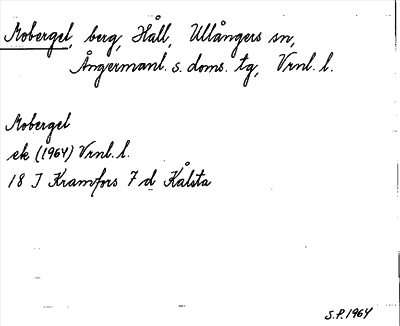 Mobergel, berg, Håll, Ullångers sn,
Ångermanl. s. doms. tg, Vrnl. l.
Mobergel
ek (1964) Vrnl. l.
18 I Kramfors 7 d Kålsta
S.P. 1964